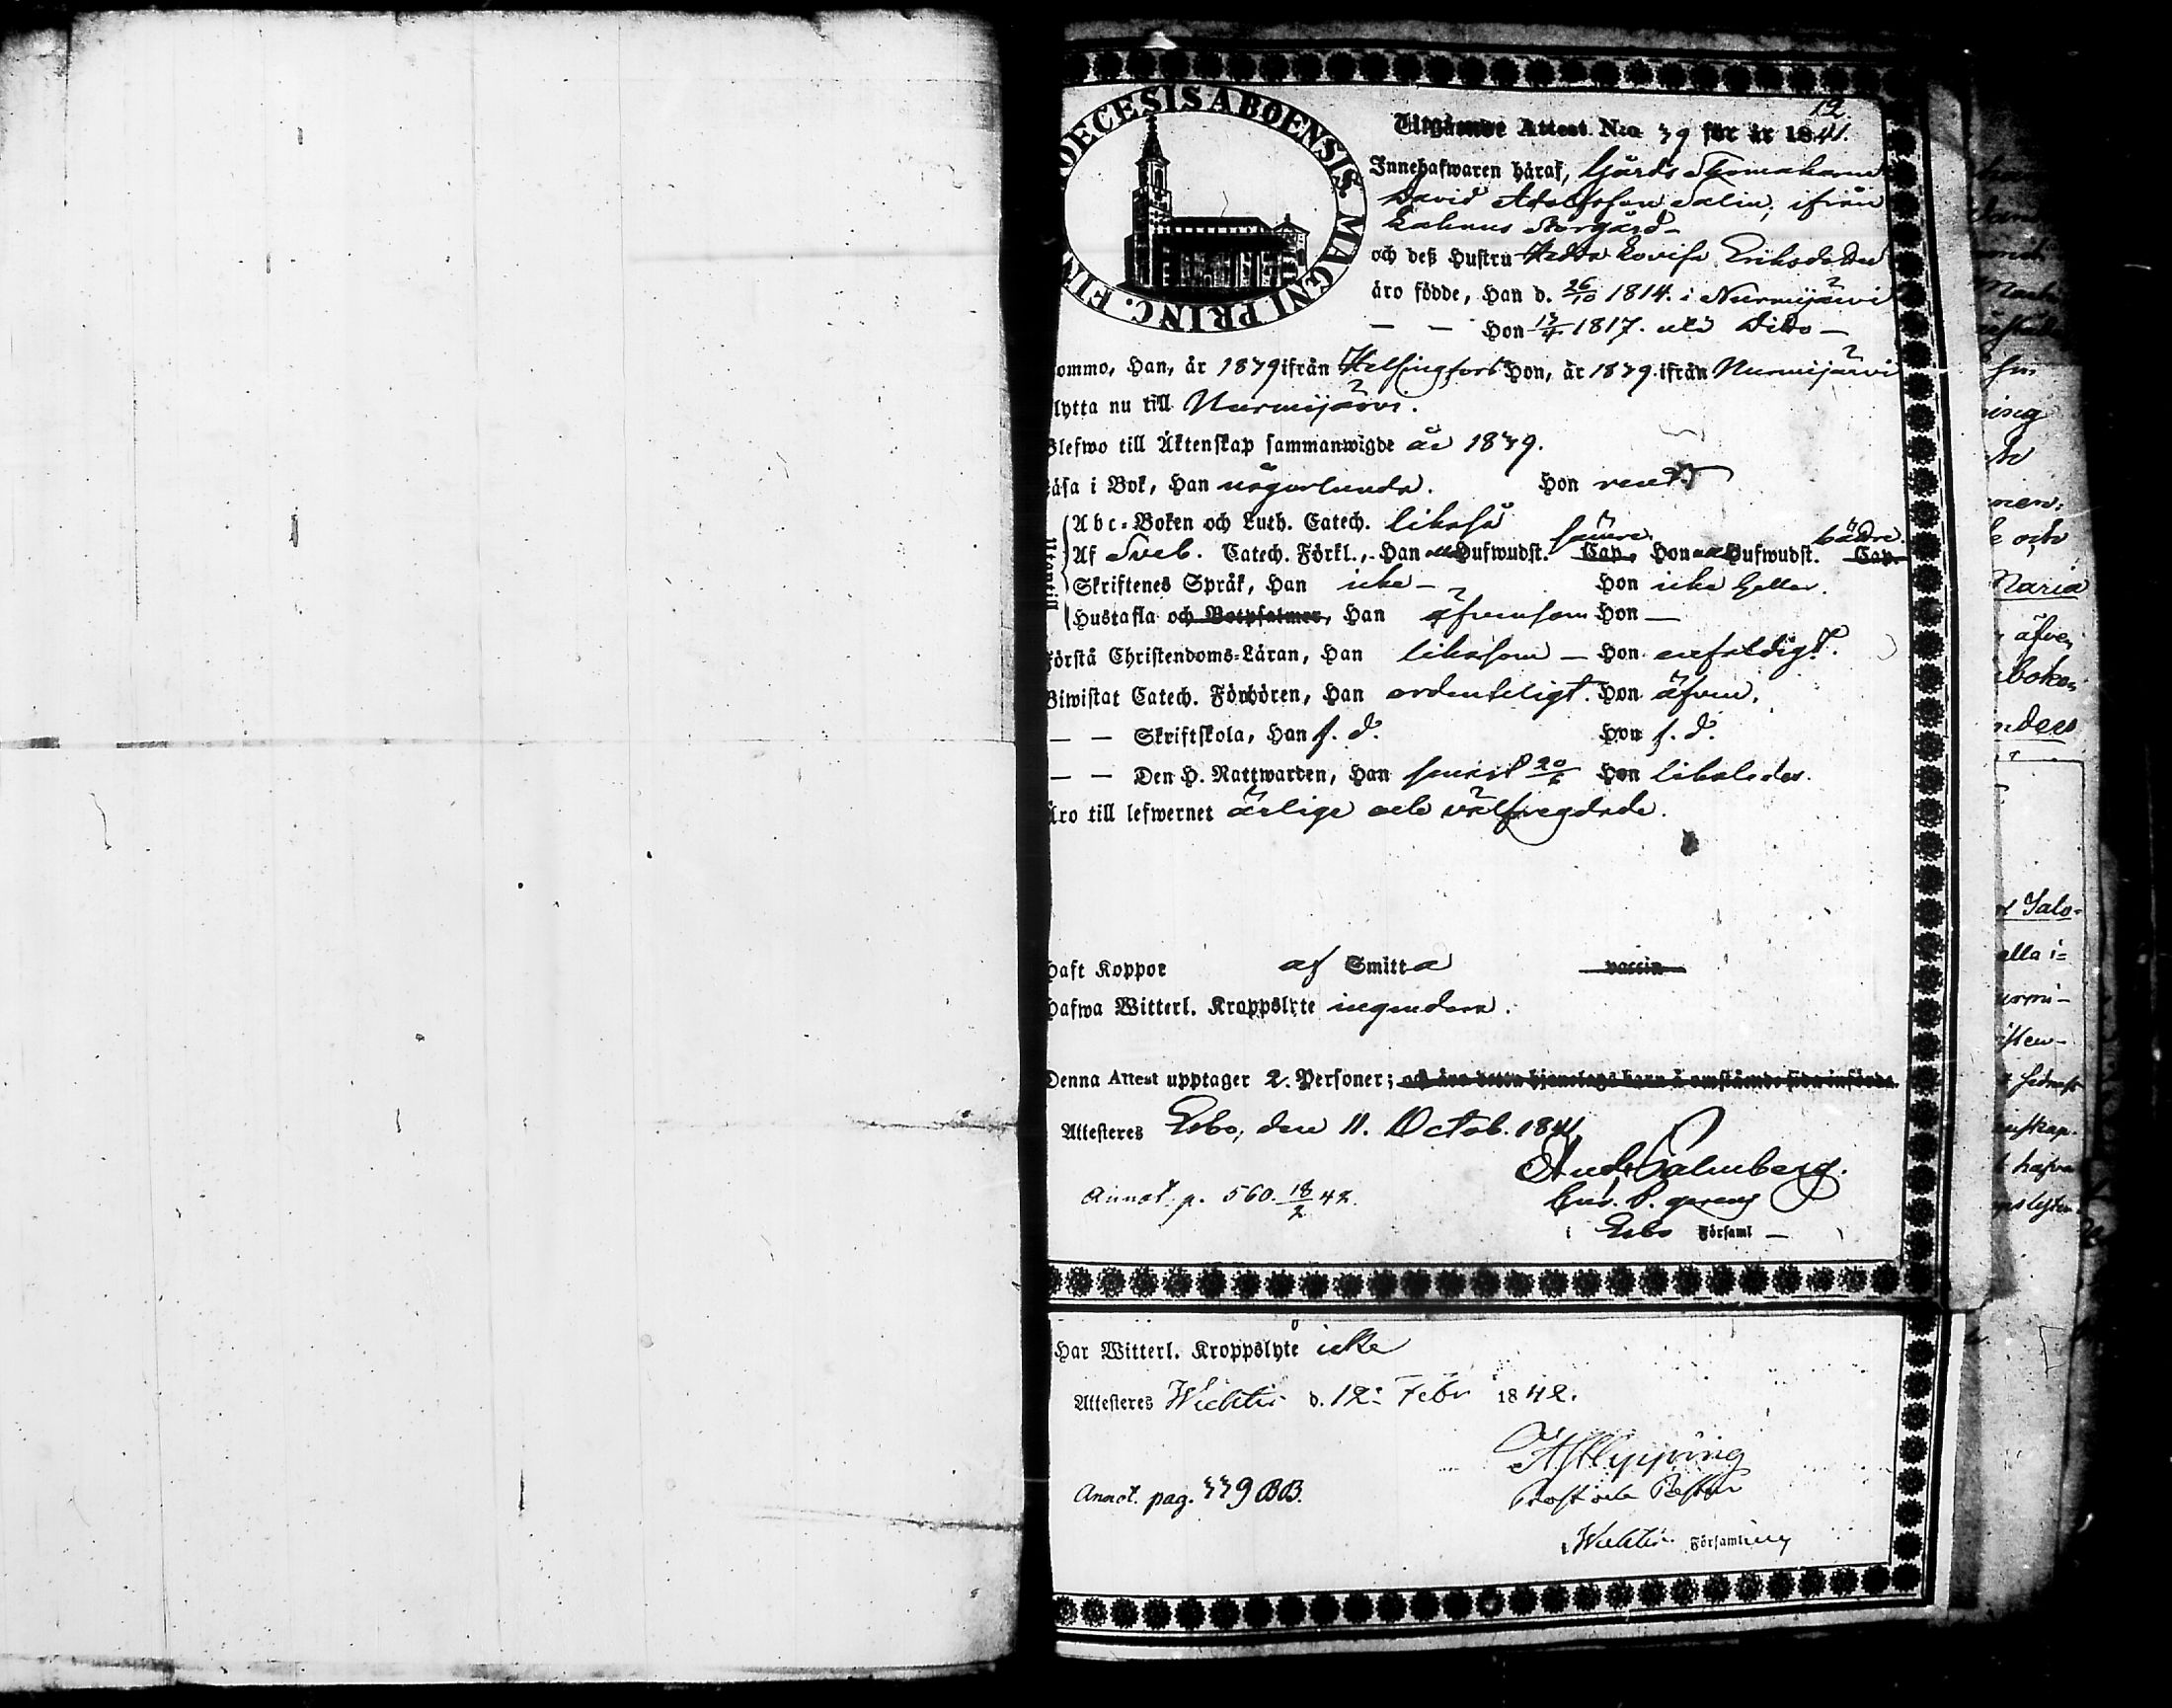 12.
DIOECESIS ABOENSIS. MAGNI PRINC. FIN
Utgående Attest N:o 39 för år 1841.
Innehafwaren häraf, Gårds
David Adolfsson Salin, ifrån
Storgård
och deß Hustru Hedda Lovisa Eriksdotter
äro födde, Han d. 26/10 1814. i Nurmijärvi
— — Hon 13/4 1817. uti dito —
ommo, Han, år 1839 ifrån Helsingfors Hon, år 1839. ifrån Nurmijärvi
lytta nu till Nurmijärvi.
Blefwo till Äktenskap sammanwigde år 1839.
äsa i Bok, Han någorlunda. Hon rent.
Abc-Boken och Luth. Catech. likaså
Af Sveb. Catech. Förkl., Han Hufwudst. Cap. sämre Hon Hufwudst. Cap. bättre.
Skriftenes Språk, Han icke — Hon icke heller.
Hustafla och Botpsalmer, Han äfvensom Hon —
örstå Christendoms-Läran, Han likasom — Hon enfaldigt.
Biwistat Catech. Förhören, Han ordenteligt. Hon äfven.
— — Skriftskola, Han f. d. Hon f. d.
— — Den H. Nattwarden, Han senast 20/6 Hon likaledes.
Äro till lefwernet ärlige och välfregdade.
Haft Koppor af Smitta vaccin
Hafwa Witterl. Kroppslyte ingendera.
Denna Attest upptager 2. Personer; och äro deras barn å omstående sida införde.
Attesteres Esbo, den 11. Octob. 1841
And. Palmberg.
Annot. p. 560. 18/2 42.
i Esbo Församl —
Har Witterl. Kroppslyte icke
Attesteres Wichtis d. 12: Febr 1842.
Hypping
Annot. pag. 339 BB.
Prost och Pastor
i Wichtis Församling
Maria
äfven
boken
nders
Salo-
alla i=